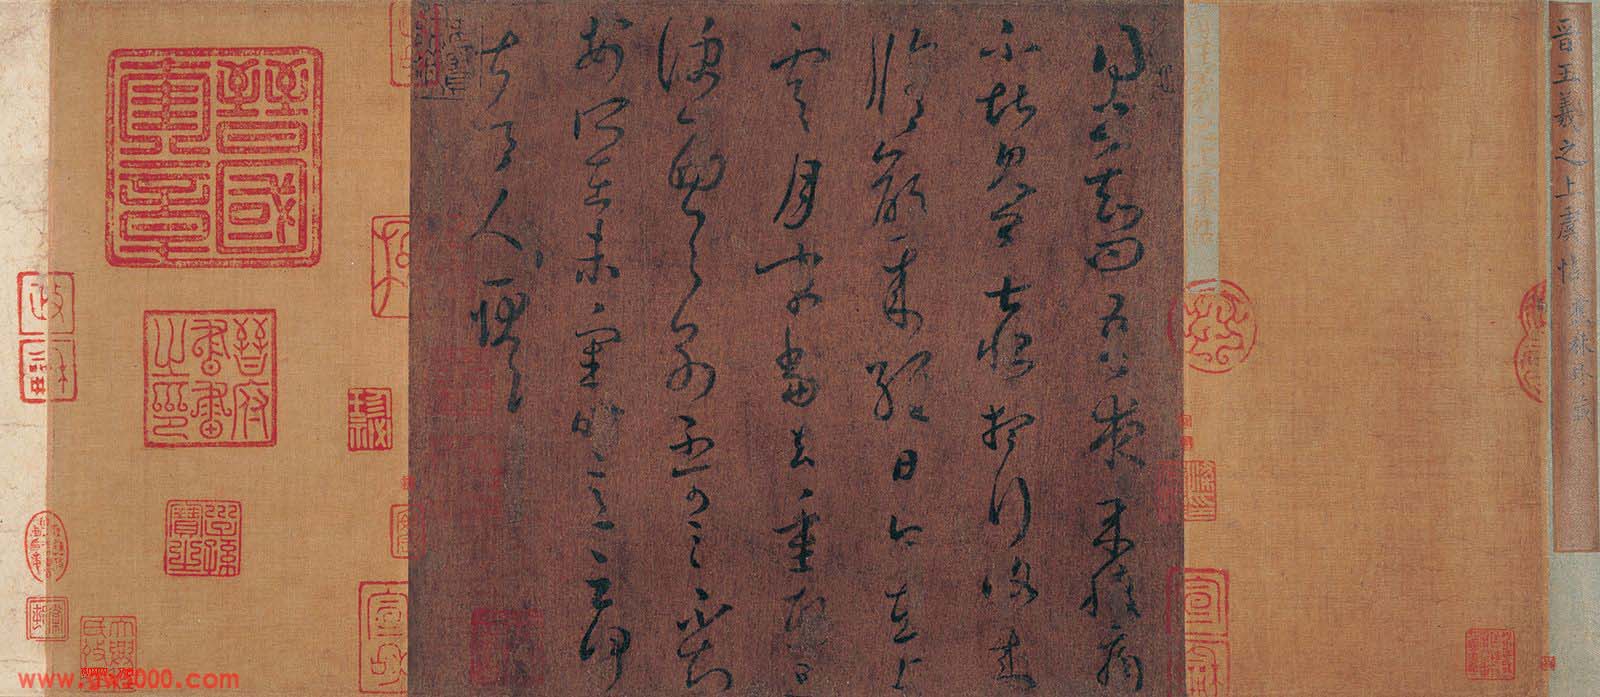 晉王羲之上虞帖
得書知問吾夜來腹痛
不堪見卿甚恨想行復來
脩齡來經日今在上
虞月末當去重熙旦
便西與別不可言不知
安所在未審時意云何
甚令人耿耿
晉國奎章
晉府書畫之印